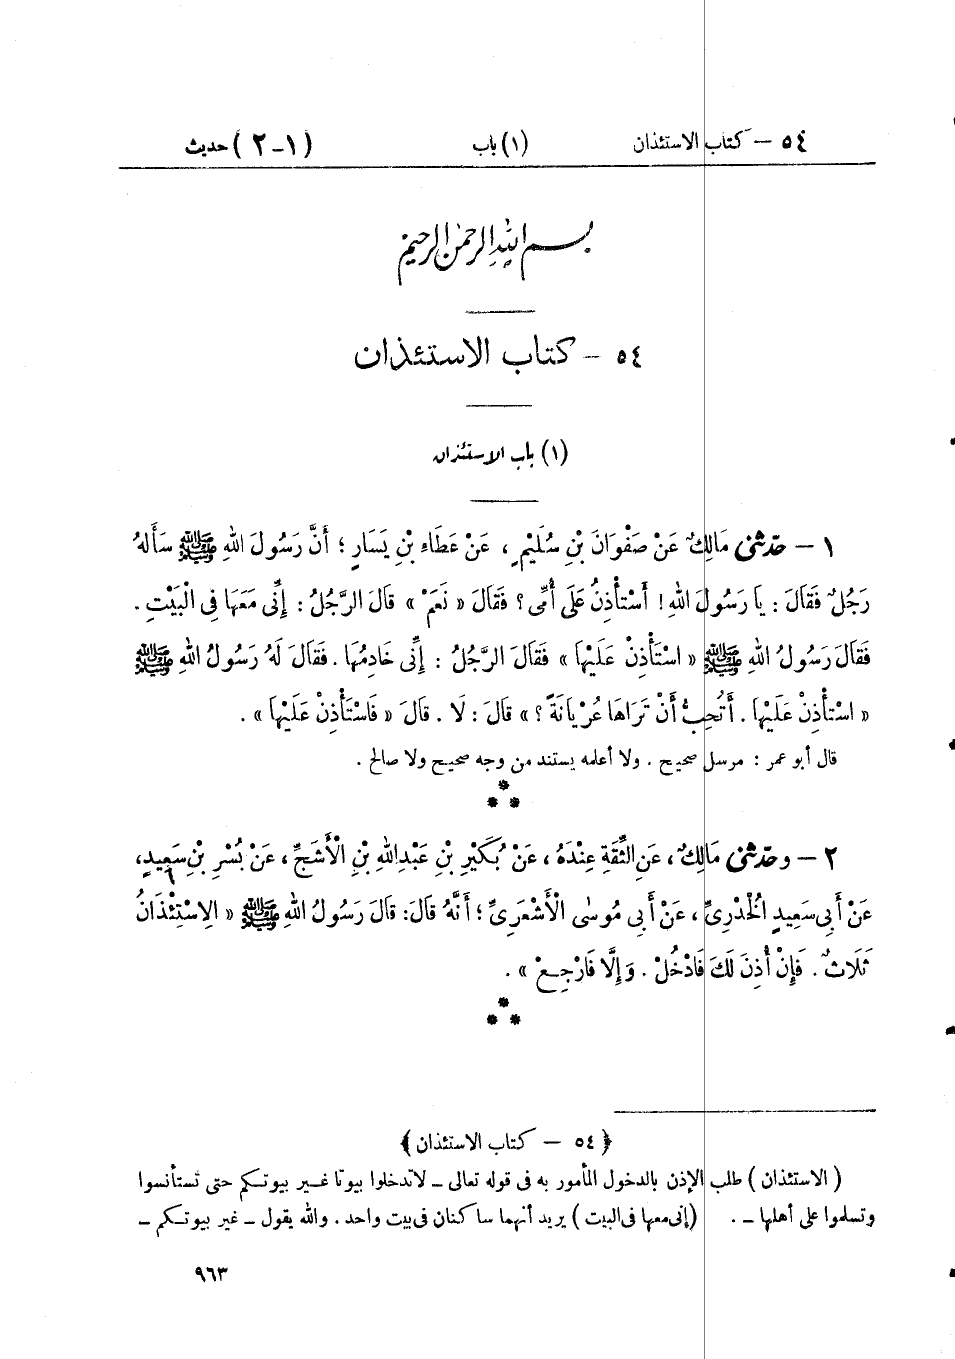 ٥٤ – كتاب الاستئذان (١) باب (١-٢) حديث
بسم الله الرحمن الرحيم
٥٤ – كتاب الاستئذان
(١) باب الاستئذان
١ – حدّثني مَالِكٌ عَنْ صَفْوَانَ بْنِ سُلَيْمٍ ، عَنْ عَطَاءِ بْنِ يَسَارٍ ؛ أَنَّ رَسُولَ اللهِ ﷺ سَأَلَهُ
رَجُلٌ فَقَالَ : يَا رَسُولَ اللهِ ! أَسْتَأْذِنُ عَلَى أُمِّي ؟ فَقَالَ « نَعَمْ » قَالَ الرَّجُلُ : إِنِّي مَعَهَا فِي الْبَيْتِ .
فَقَالَ رَسُولُ اللهِ ﷺ « اسْتَأْذِنْ عَلَيْهَا » فَقَالَ الرَّجُلُ : إِنِّي خَادِمُهَا . فَقَالَ لَهُ رَسُولُ اللهِ ﷺ
« اسْتَأْذِنْ عَلَيْهَا . أَتُحِبُّ أَنْ تَرَاهَا عُرْيَانَةً ؟ » قَالَ : لَا . قَالَ « فَاسْتَأْذِنْ عَلَيْهَا » .
قال أبو عمر : مرسل صحيح . ولا أعلمه يستند من وجه صحيح ولا صالح .
٢ – وحدّثني مَالِكٌ ، عَنِ الثِّقَةِ عِنْدَهُ ، عَنْ بُكَيْرِ بْنِ عَبْدِ اللهِ بْنِ الْأَشَجِّ ، عَنْ بُسْرِ بْنِ سَعِيدٍ ،
عَنْ أَبِي سَعِيدٍ الْخُدْرِيِّ ، عَنْ أَبِي مُوسَى الْأَشْعَرِيِّ ؛ أَنَّهُ قَالَ : قَالَ رَسُولُ اللهِ ﷺ « الِاسْتِئْذَانُ
ثَلَاثٌ . فَإِنْ أُذِنَ لَكَ فَادْخُلْ . وَإِلَّا فَارْجِعْ » .
﴿ ٥٤ – كتاب الاستئذان ﴾
( الاستئذان ) طلب الإذن بالدخول المأمور به في قوله تعالى – لا تدخلوا بيوتا غير بيوتكم حتى تستأنسوا
وتسلموا على أهلها – . (إني معها في البيت ) يريد أنهما ساكنان في بيت واحد . والله يقول – غير بيوتكم –
٩٦٣